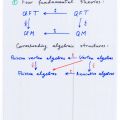 ① Four fundamental theories:
CFT QFT
CM QM
Corresponding algebraic structures:
Poisson vertex algebras Vertex algebras
Poisson algebras Associative algebras